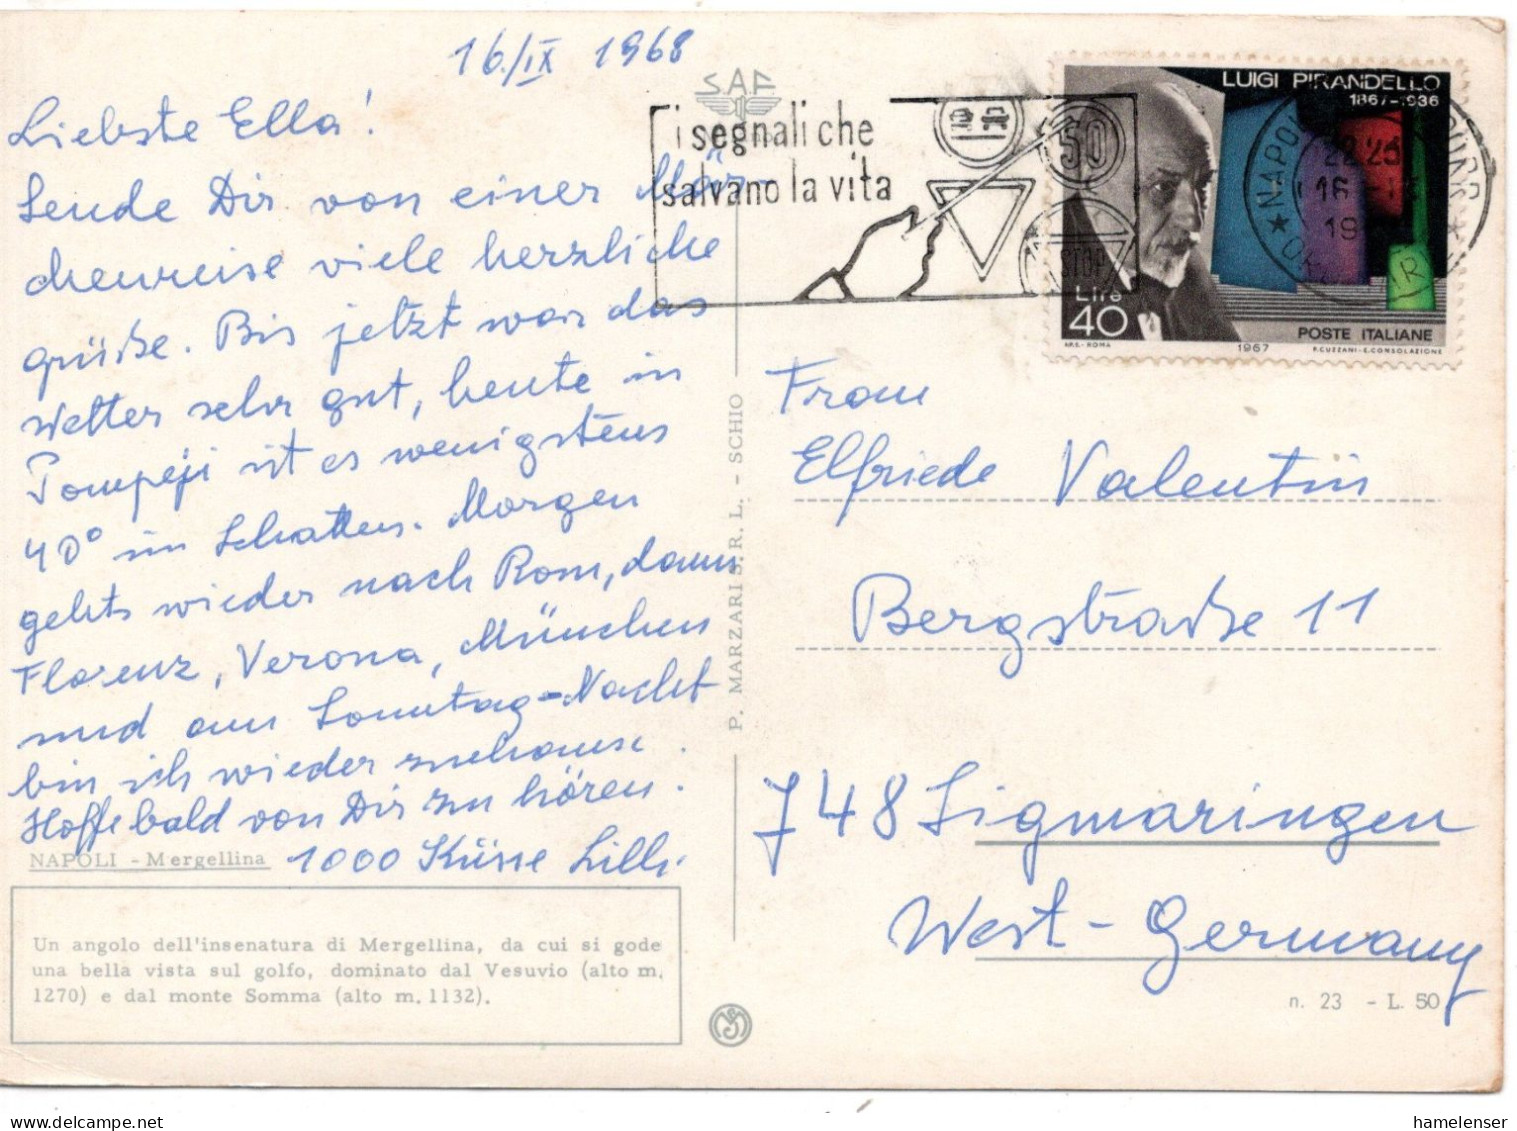 16./IX 1968
Liebste Ella!
Sende Dir von einer Mär-
chenreise viele herzliche
grüße. Bis jetzt war das
Wetter sehr gut, heute in
Pompeji ist es wenigstens
40° im Schatten. Morgen
gehts wieder nach Rom, dann
Florenz, Verona, München
und am Sonntag-Nacht
bin ich wieder zuhause.
Hoffe bald von Dir zu hören.
1000 Küsse Lilli
NAPOLI - Mergellina
Un angolo dell'insenatura di Mergellina, da cui si gode
una bella vista sul golfo, dominato dal Vesuvio (alto m.
1270) e dal monte Somma (alto m. 1132).
SAF
P. MARZARI S. R. L. - SCHIO
i segnali che
salvano la vita
50
STOP
LUIGI PIRANDELLO
1867-1936
Lire
40
POSTE ITALIANE
A.R.S. - ROMA
1967
P.CUZZANI-E.CONSOLAZIONE
Frau
Elfriede Valentin
Bergstraße 11
748 Sigmaringen
West-Germany
n. 23 - L. 50
hamelenser
www.delcampe.net